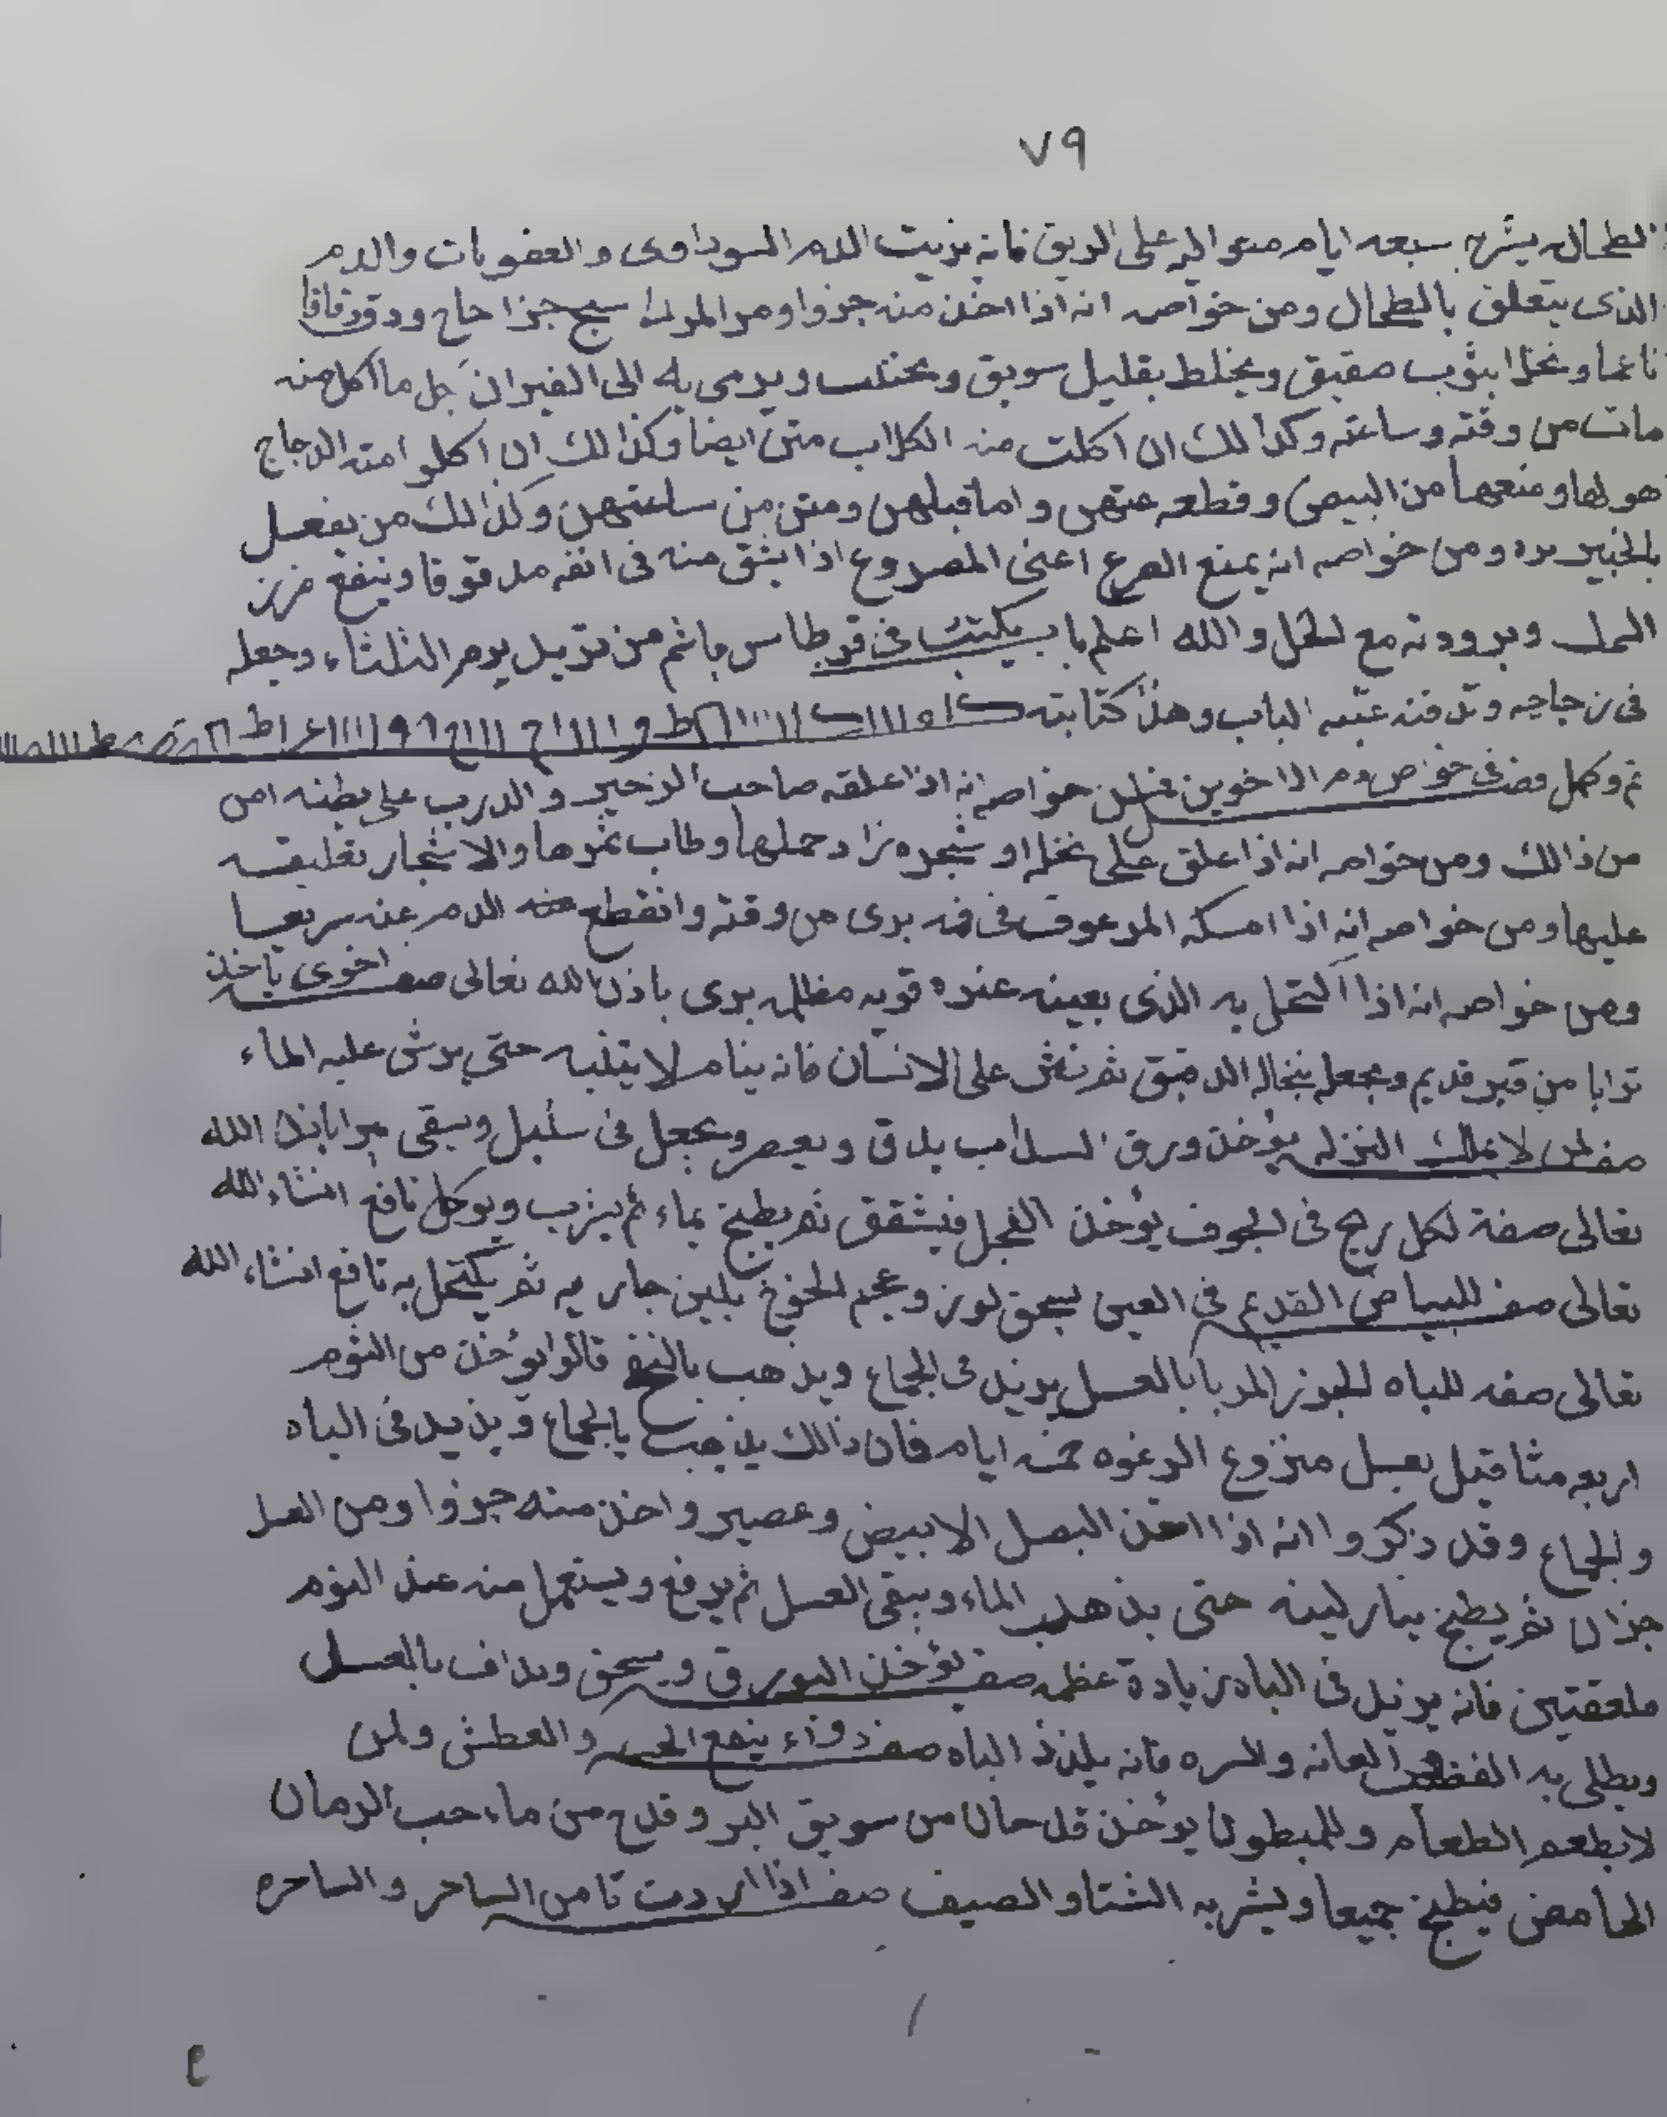 ٧٩
الطحال يشرب سبعه ايام متواليه على الريق فانه يزيت الدم السوداوى والعفونات والدم
الذى يتعلق بالطحال ومن خواصه انه اذا اخذ منه جزوا ومن المرتك سبع جزا حاج ودق دقاقا
ناعما ونخلا بثوب صفيق ويخلط بقليل سويق ويرمى به الى الفيران جل ما اكل منه
مات من وقته وساعته وكذالك ان اكلت منه الكلاب متن ايضا وكذالك ان اكلوا منه الدجاج
هولها ومنعها من البيض وقطعه عنهن واما قبلهن ومتن من ساعتهن وكذالك من يفعل
بالخبير ومن خواصه انه يمنع الصرع اعنى المصروع اذا نشق منه فى انفه مدقوقا وينفع
وبرودته مع الخل والله اعلم باب يكتب فى قرطاس من يوم الثلثاء وجعله
فى زجاجه وتدفنه عتبه الباب وهذا كتابته
تم وكمل فصل فى خواص دم الاخوين فمن خواصه انه اذا علقه صاحب الزحير والدرب على بطنه امن
من ذالك ومن خواصه انه اذا علق على نخله او شجره زاد حملها وطاب ثمرها والاشجار تعليقه
عليها ومن خواصه انه اذا امسكه المرعوف فى فمه برى من وقته وانقطع عنه الدم عنه سريعا
ومن خواصه انه اذا اكتحل به الذى بعينه مظلمه برى باذن الله تعالى صفه اخرى تاخذ
ترابا من قبر قديم وتجعل بنخاله الدقيق ثم تنثر على الانسان فانه ينام لا يتنبه حتى يرش عليه الماء
صفه لمن لا يملك النزله يؤخذ ورق السداب يدق ويعصر ويجعل فى ويسقى مرابا الله
تعالى صفة لكل ريح فى الجوف يؤخذ الفجل فيشقق ثم يطبخ بماء ثم ويوكل نافع انشاء الله
تعالى صفه للبياض القديم فى العين يسحق لوز وعجم الخوخ بلبن جاريه ثم يكتحل به نافع انشاء الله
تعالى صفه للباه الجوز المربا بالعسل يزيد فى الجماع ويذهب بالنفخ قالوا يؤخذ من الثوم
اربعه مثاقيل بعسل منزوع الرغوه خمسه ايام فان ذالك يذهب بالجماع ويزيد فى الباه
والجماع وقد ذكروا انه اذا اخذ البصل الابيض وعصير واخذ منه جزوا ومن العسل
جزان ثم يطبخ بنار لينه حتى يذهب الماء ويبقى العسل ثم يرفع ويستعمل منه عند النوم
ملعقتين فانه يزيد فى الباه زيادة عظيمه صفه يؤخذ البورق ويسحق ويداف بالعسل
ويطلى به القضيب والعانه والسره فانه يلذذ الباه صفه دواء ينفع الحمى والعطش ولمن
لا يطعم الطعام وللمبطون يؤخذ قدحان من سويق البر وقدح من ماء حب الرمان
الحامض فيطبخ جميعا ويشربه الشتا والصيف صفه اذا اردت تامن الساحر والساحره